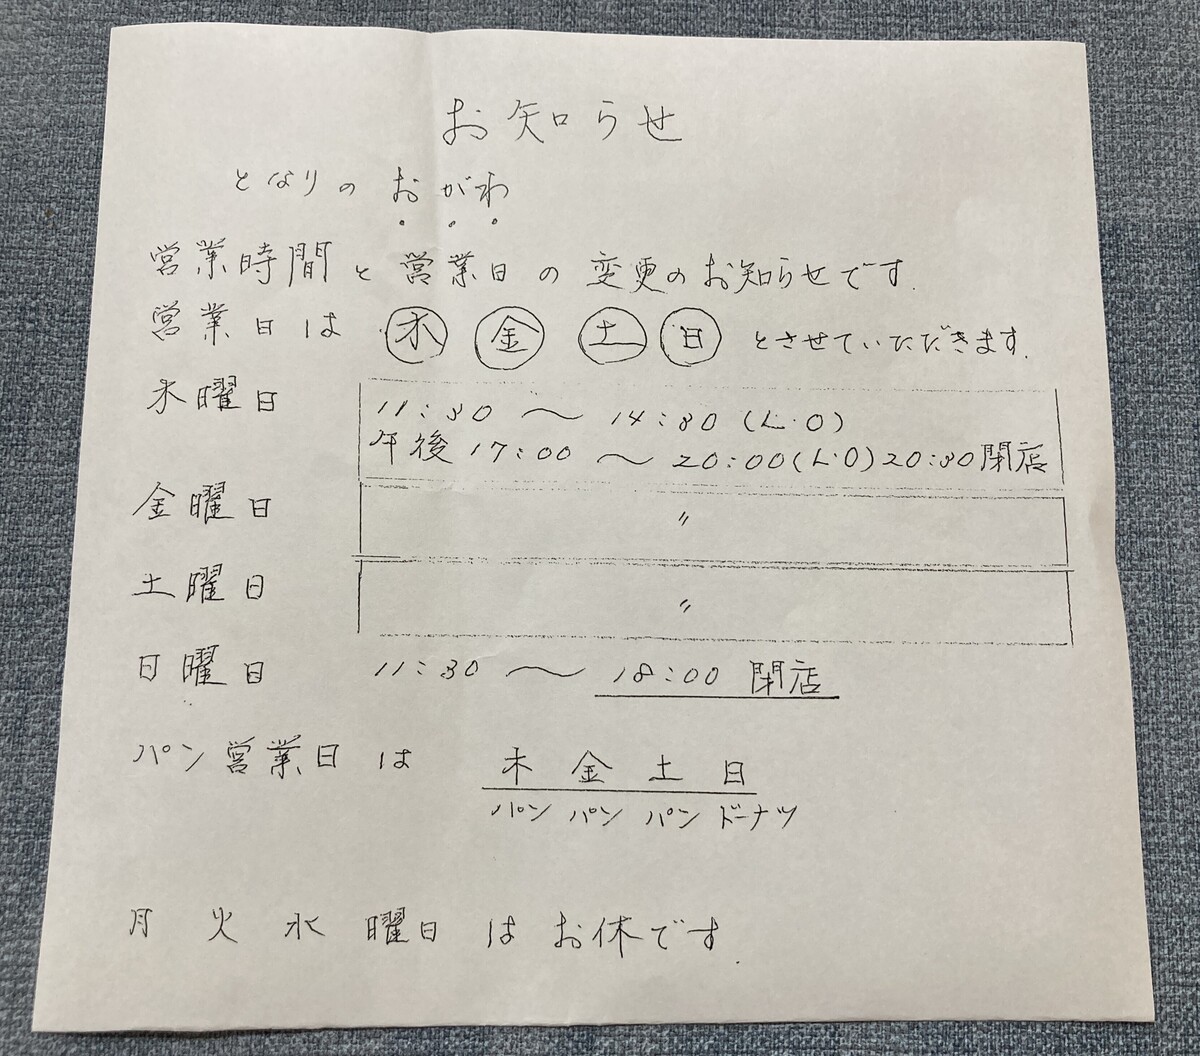 お知らせ
となりの おがわ
営業時間と営業日の変更のお知らせです.
営業日は 木 金 土 日 とさせていただきます.
木曜日 11:30 〜 14:30 (L.O)
午後 17:00 〜 20:00(L.O)20:30閉店
金曜日 〃
土曜日 〃
日曜日 11:30 〜 18:00 閉店
パン営業日は 木 金 土 日
パン パン パン ドーナツ
月 火 水 曜日 は お休です.